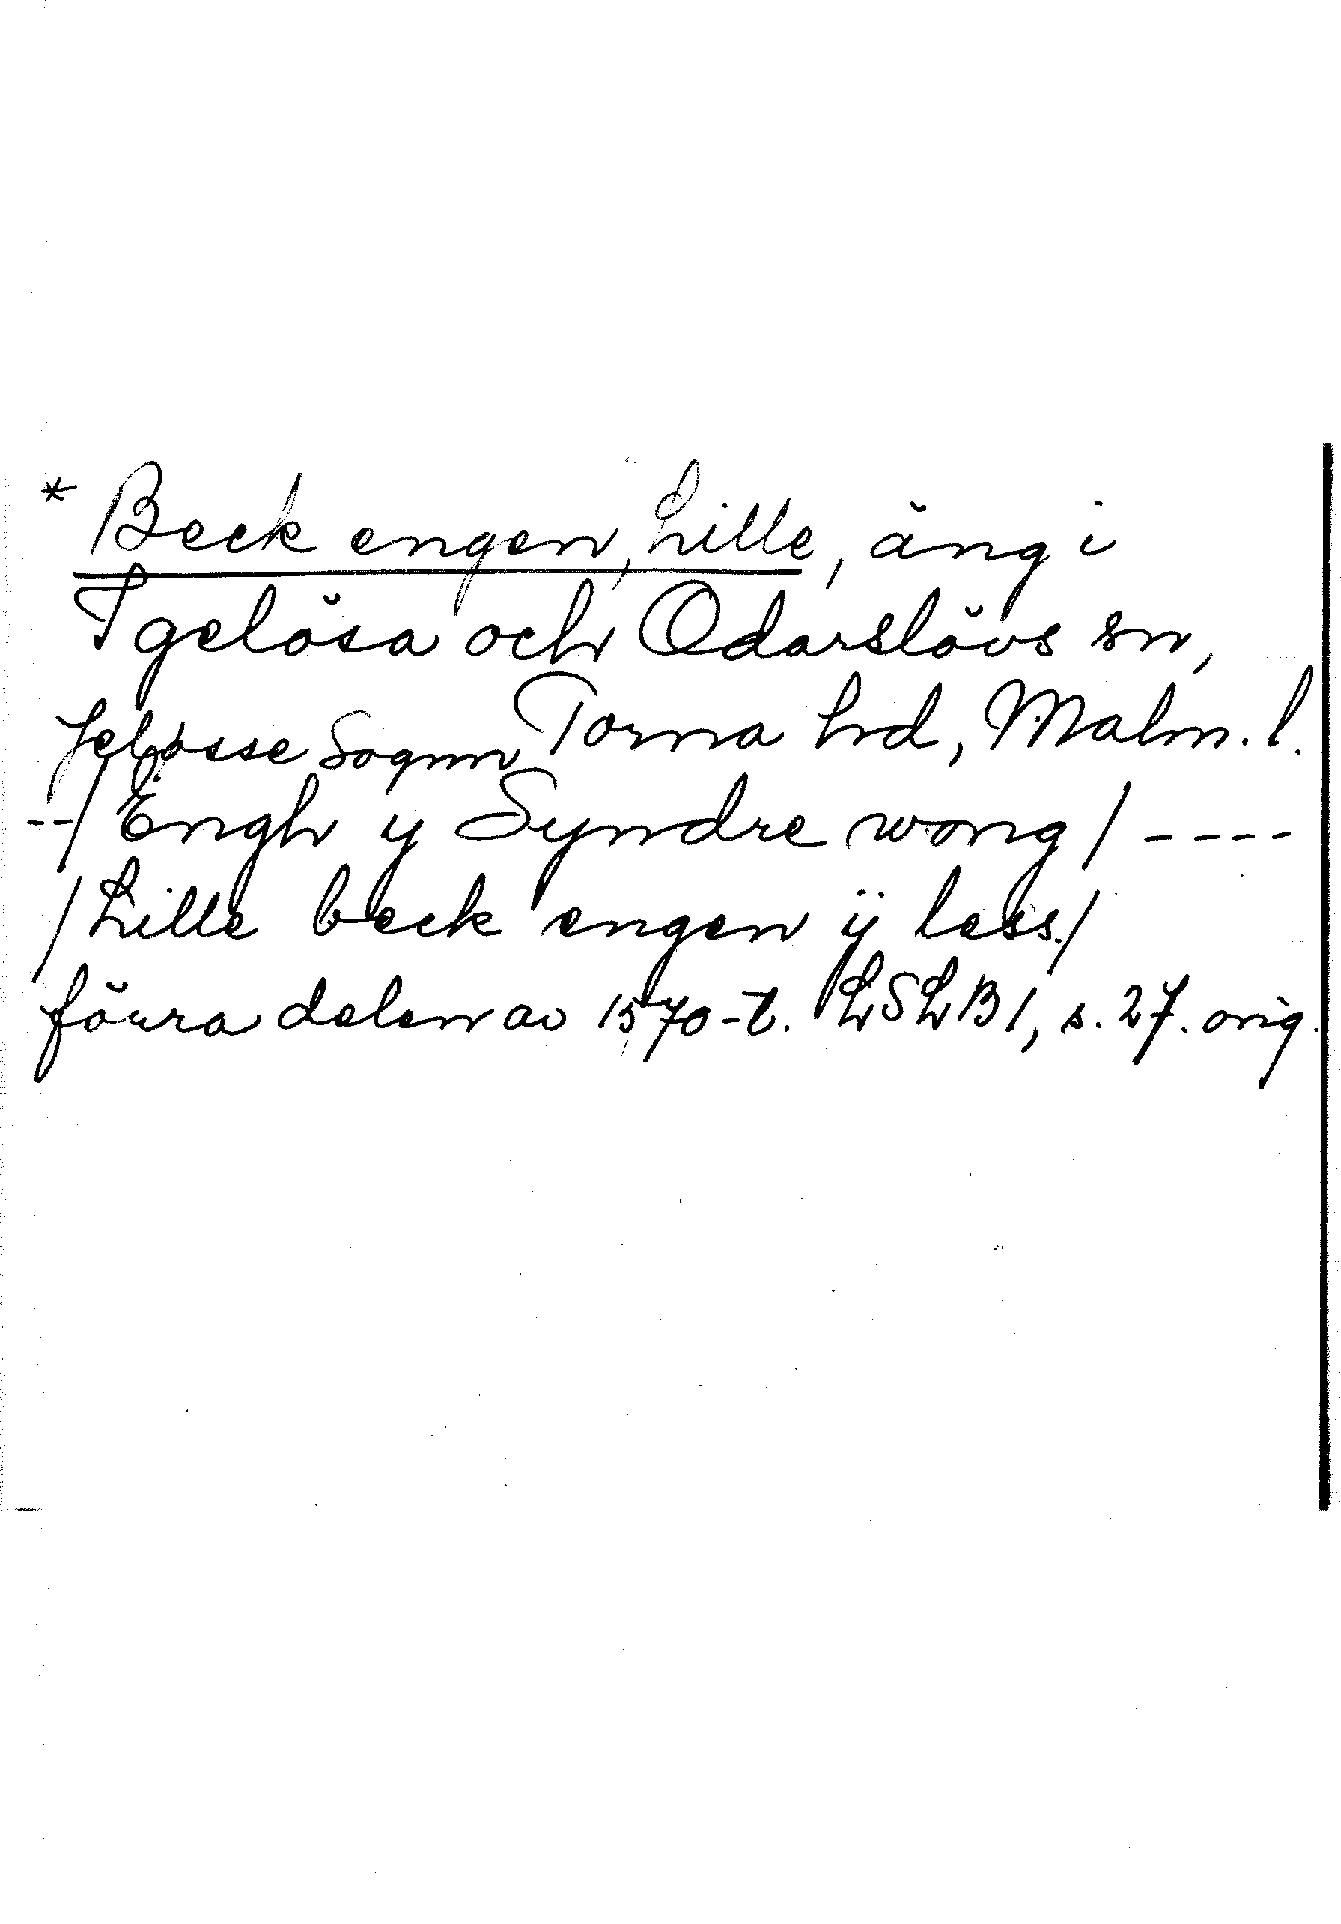 * Beck engen, Lille, äng i
Igelösa och Odarslövs sn,
Jeløsse Sognn Torna hd, Malm. l.
--/Engh y Syndre wong/----
/Lille beck engen ÿ less/
förra delen av 1570-t. LSLB1, s. 27. orig.